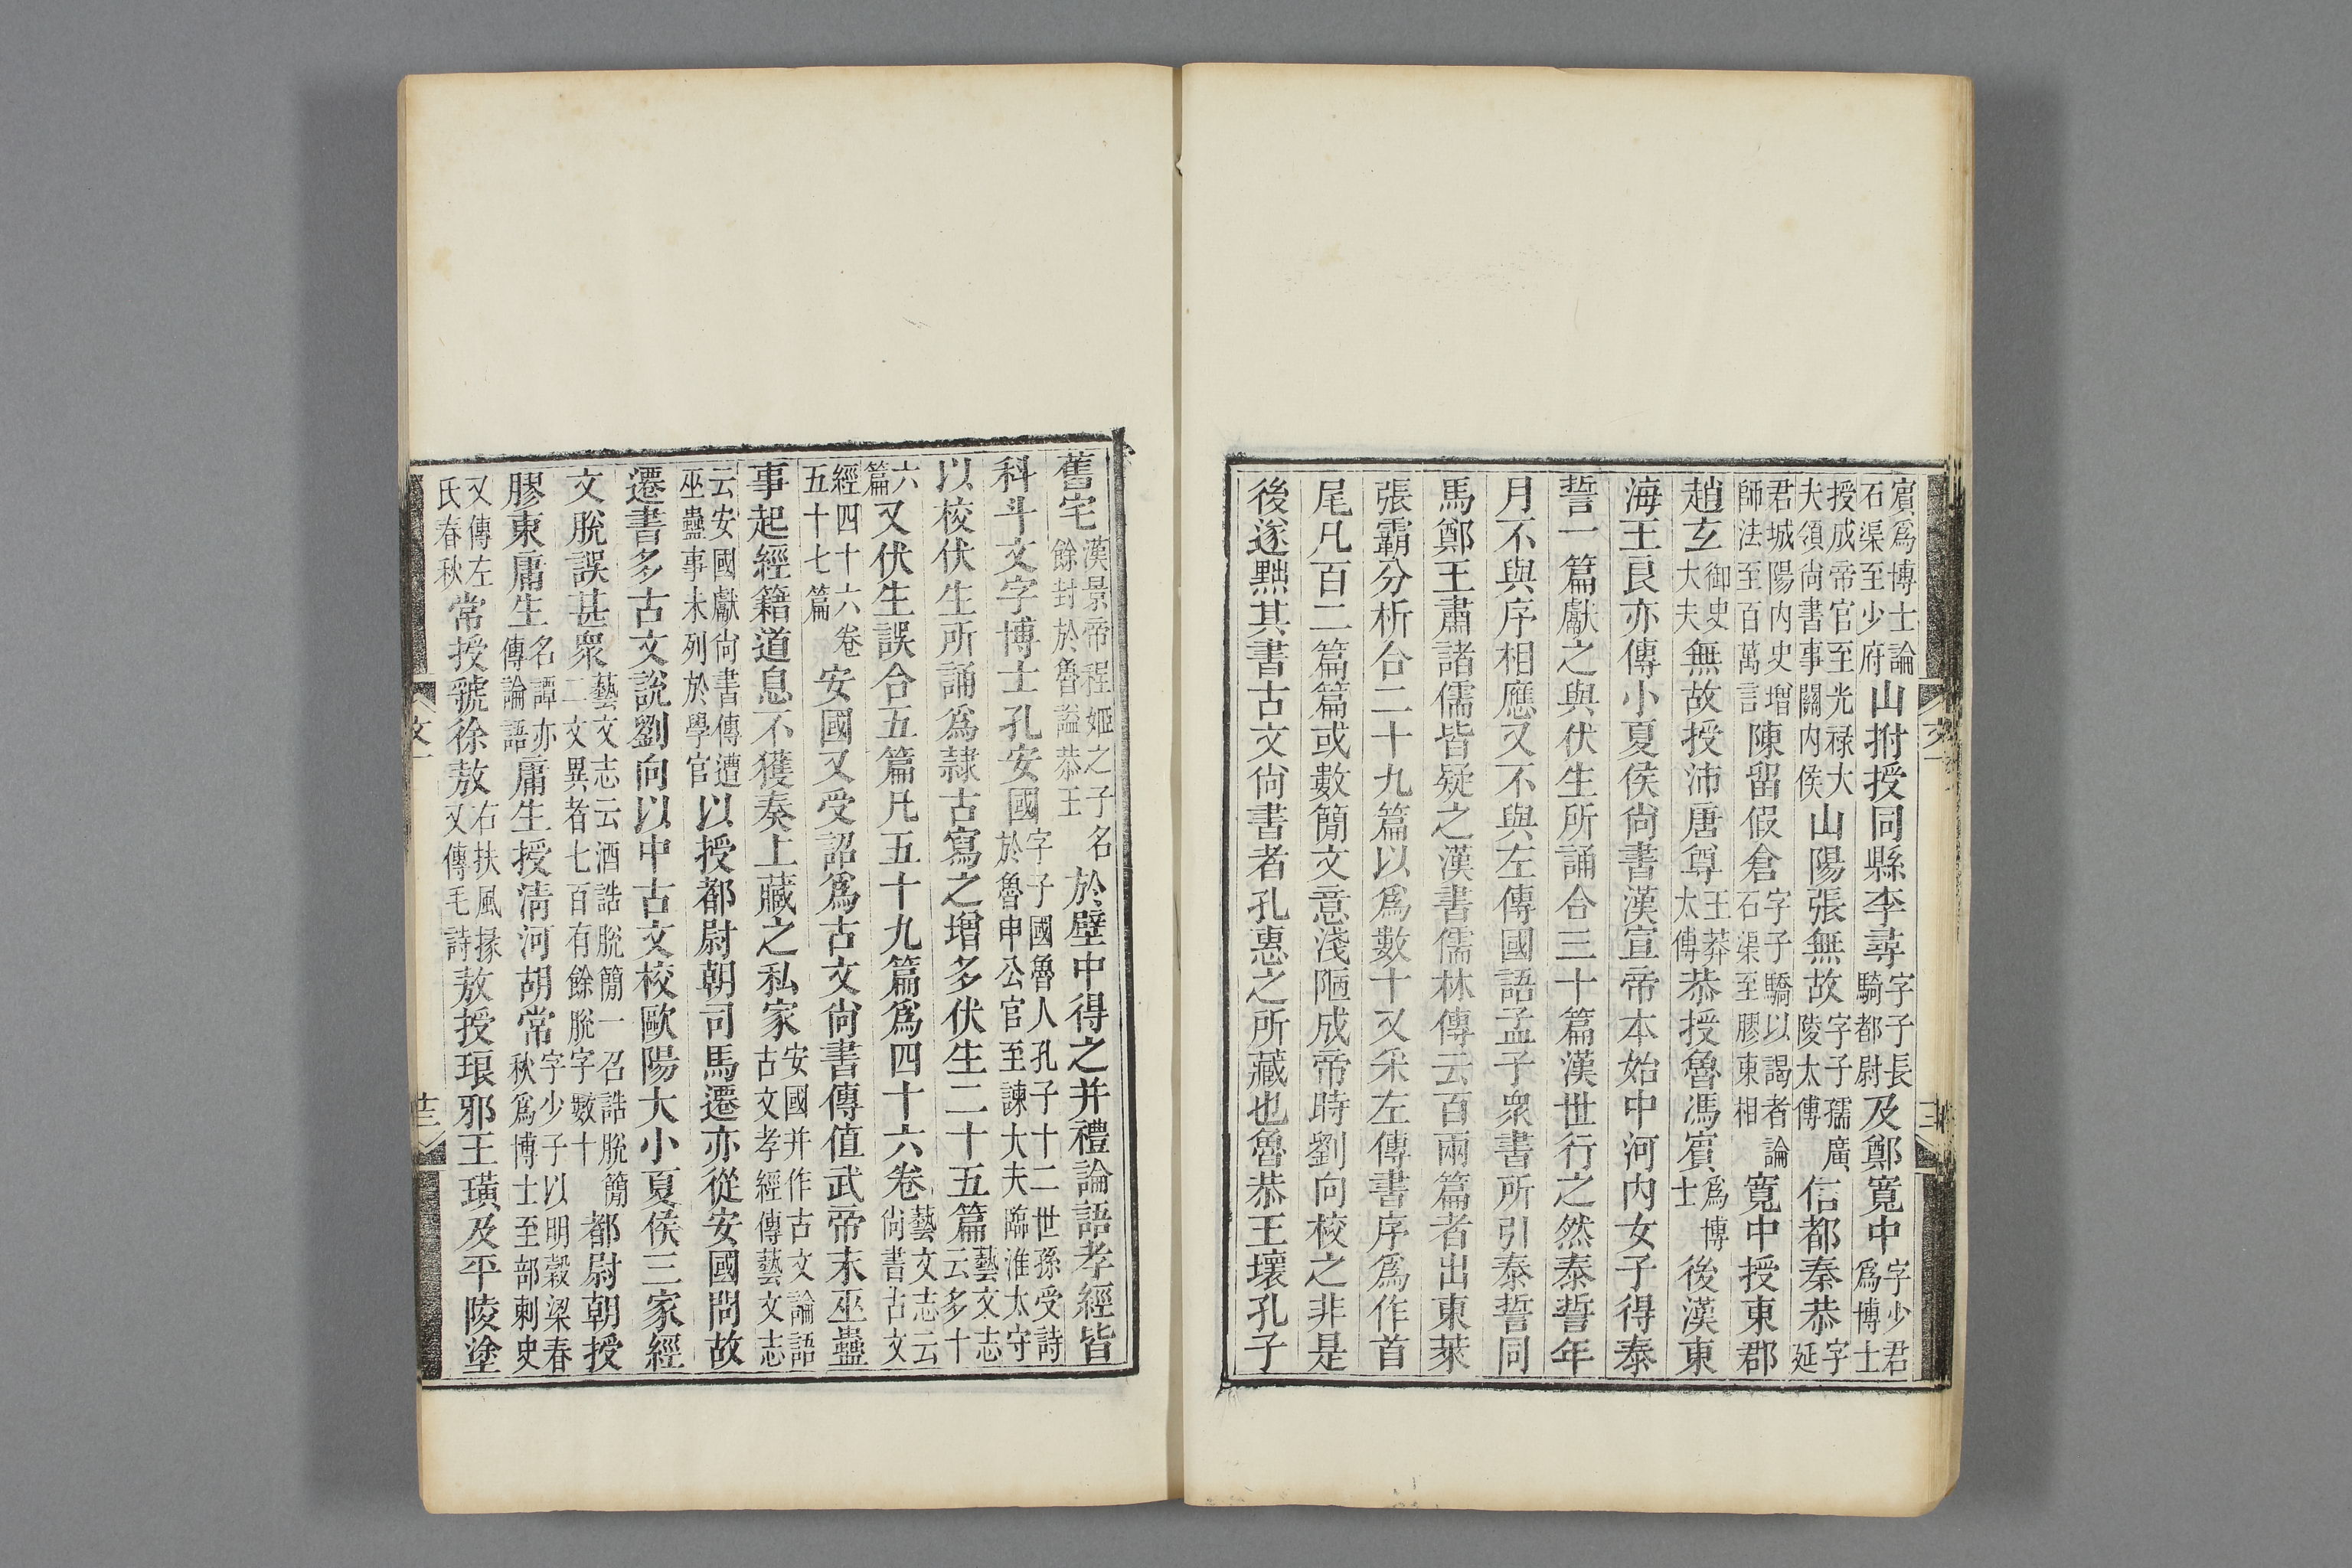 賔爲博士論石渠至少府山拊授同縣李尋字子長騎都尉及鄭寬中字少君爲博士
授成帝官至光禄大夫領尚書事關内侯山陽張無故字子孺廣陵太傅信都秦恭字延
君城陽内史增師法至百萬言陳留假倉字子驕以謁者論石渠至膠東相寬中授東郡
趙玄御史大夫無故授沛唐尊王莽太傅恭授魯馮賔爲博士後漢東
海王良亦傳小夏侯尚書漢宣帝本始中河内女子得泰
誓一篇獻之與伏生所誦合三十篇漢世行之然泰誓年
月不與序相應又不與左傳國語孟子衆書所引泰誓同
馬鄭王肅諸儒皆疑之漢書儒林傳云百兩篇者出東萊
張霸分析合二十九篇以爲數十又采左傳書序爲作首
尾凡百二篇篇或數簡文意淺陋成帝時劉向校之非是
後遂黜其書古文尚書者孔惠之所藏也魯恭王壞孔子
舊宅漢景帝程姬之子名餘封於魯謚恭王於壁中得之并禮論語孝經皆
科斗文字博士孔安國字子國魯人孔子十二世孫受詩於魯申公官至諫大夫臨淮太守
以校伏生所誦爲隷古寫之增多伏生二十五篇藝文志云多十
六篇又伏生誤合五篇凡五十九篇爲四十六卷藝文志云尚書古文
經四十六卷五十七篇安國又受詔爲古文尚書傳值武帝末巫蠱
事起經籍道息不獲奏上藏之私家安國并作古文論語古文孝經傳藝文志
云安國獻尚書傳遭巫蠱事未列於學官以授都尉朝司馬遷亦從安國問故
遷書多古文說劉向以中古文校歐陽大小夏侯三家經
文脫誤甚衆藝文志云酒誥脫簡一召誥脫簡二文異者七百有餘脫字數十都尉朝授
膠東庸生名譚亦傳論語庸生授清河胡常字少子以明穀梁春秋爲博士至部刺史
又傳左氏春秋常授虢徐敖右扶風掾又傳毛詩敖授琅邪王璜及平陵塗